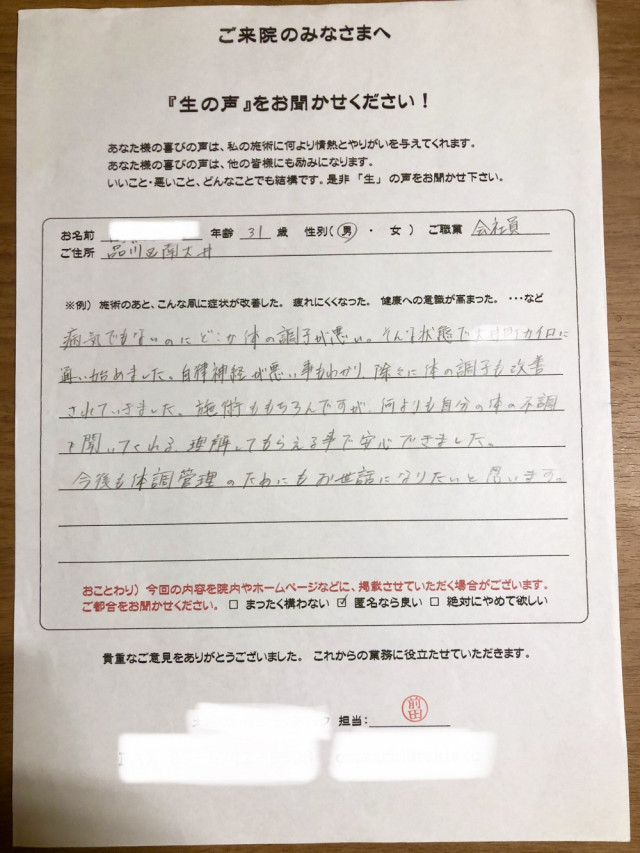 ご来院のみなさまへ
『生の声』をお聞かせください！
あなた様の喜びの声は、私の施術に何より情熱とやりがいを与えてくれます。
あなた様の喜びの声は、他の皆様にも励みになります。
いいこと・悪いこと、どんなことでも結構です。是非「生」の声をお聞かせ下さい。
お名前 年齢 31 歳 性別(男・女) ご職業 会社員
ご住所 品川区南大井
※例) 施術のあと、こんな風に症状が改善した。疲れにくくなった。健康への意識が高まった。・・・など
病気でもないのにどこか体の調子が悪い。そんな状態で カイロに
通い始めました。自律神経が悪い事もわかり、除々に体の調子も改善
されていきました。施術ももちろんですが、何よりも自分の体の不調
を聞いてくれる、理解してもらえる事で安心できました。
今後も体調管理のためにもお世話になりたいと思います。
おことわり) 今回の内容を院内やホームページなどに、掲載させていただく場合がございます。
ご都合をお聞かせください。 □ まったく構わない ☑ 匿名なら良い □ 絶対にやめて欲しい
貴重なご意見をありがとうございました。これからの業務に役立たせていただきます。
担当: 前田